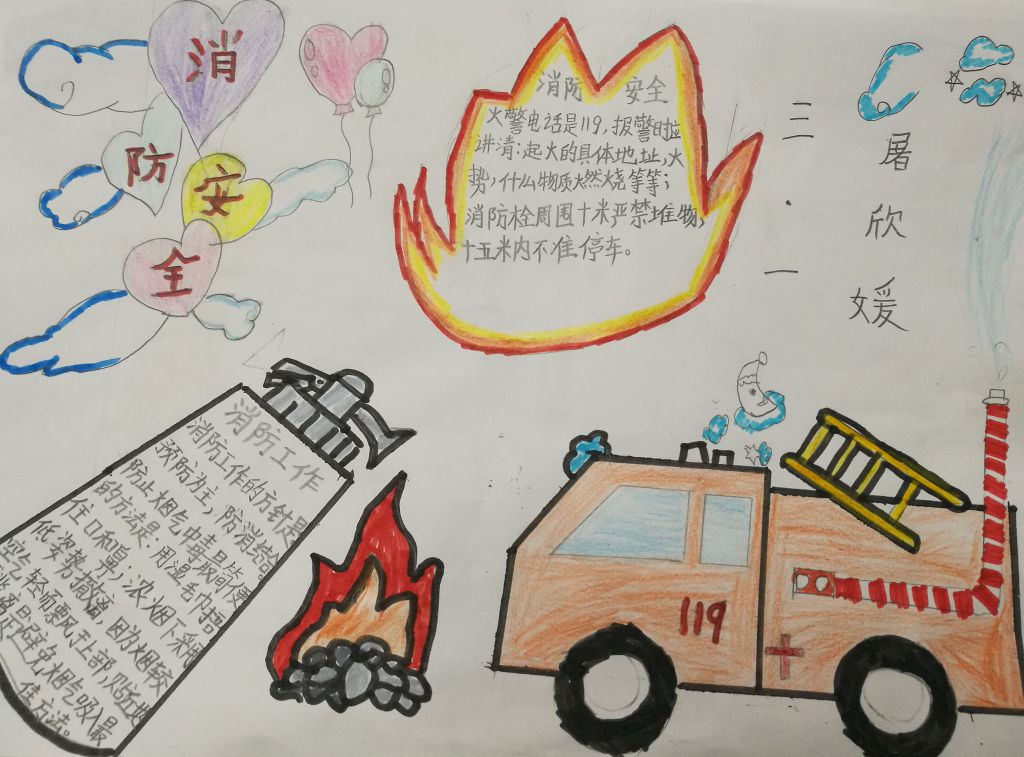 消
防
安
全
消防 安全
火警电话是119,报警时应
讲清:起火的具体地址,火
势,什么物质燃烧等等;
消防栓周围十米严禁堆物,
十五米内不准停车。
三·一
暑欣媛
消防工作
消防工作的方针是
预防为主,防消结合。
防止烟气中毒最简便
的方法是:用湿毛巾捂
住口和鼻;浓烟下采用
低姿势撤离,因为烟较
空气轻而飘于上部,贴近地
离是避免烟气吸入最
佳方法。
119